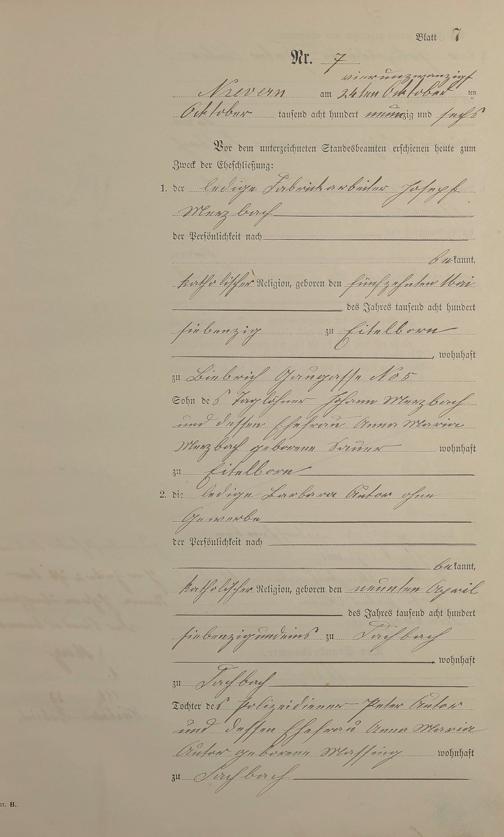 Blatt 7
Nr. 7
vierundzwanzigst
Nievern am 24ten Oktober ten
Oktober tausend acht hundert neunzig und sechs
Vor dem unterzeichneten Standesbeamten erschienen heute zum
Zweck der Eheschließung:
1. der ledige Fabrikarbeiter Joseph
Merzbach
der Persönlichkeit nach
bekannt,
katholischer Religion, geboren den fünfzehnten Mai
des Jahres tausend acht hundert
siebenzig zu Eitelborn
, wohnhaft
zu Biebrich Gaugasse No 5
Sohn des Taglöhner Johann Merzbach
und dessen Ehefrau Anna Maria
Merzbach geborene Sauer wohnhaft
zu Eitelborn
2. die ledige Barbara Autor ohne
Gewerbe
der Persönlichkeit nach
bekannt,
katholischer Religion, geboren den neunten April
des Jahres tausend acht hundert
siebenzigundeins zu Fachbach
, wohnhaft
zu Fachbach
Tochter des Polizeidiener Peter Autor
und dessen Ehefrau Anna Maria
Autor geborene Massing wohnhaft
zu Fachbach
B.